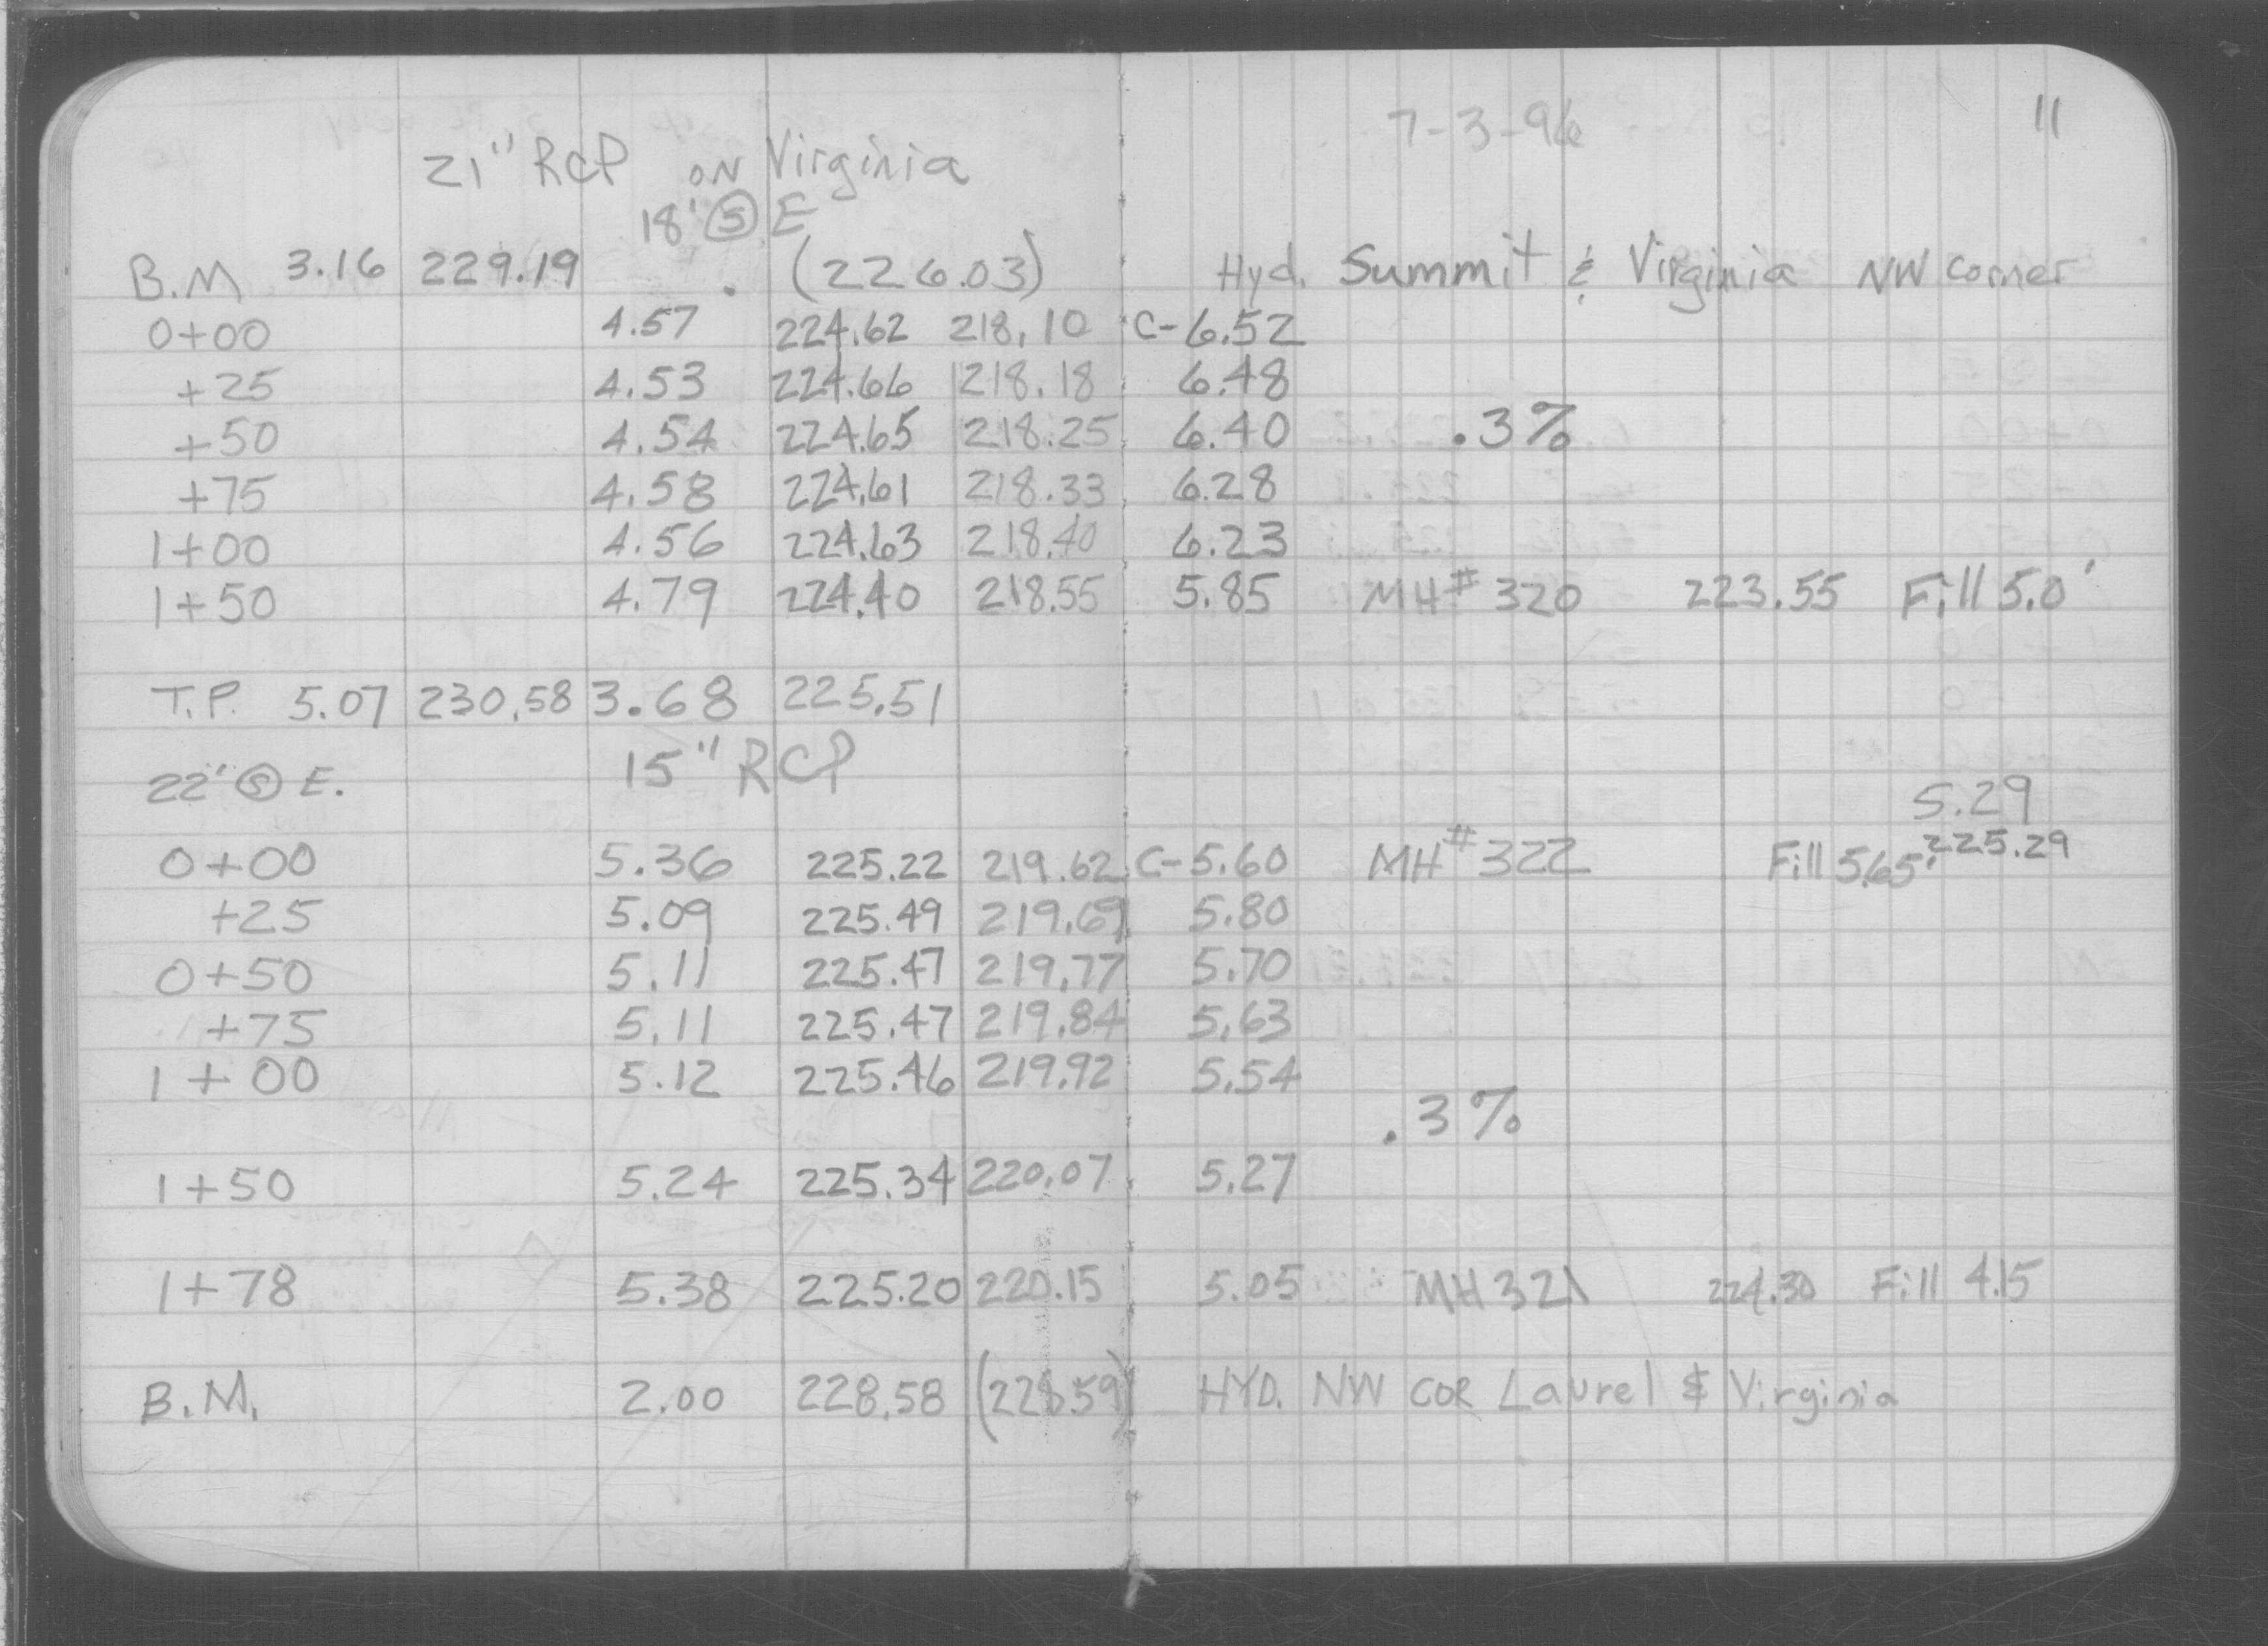 7-3-96 11
21" RCP ON Virginia
18' Ⓢ E
B.M 3.16 229.19 (226.03) Hyd. Summit & Virginia NW Corner
0+00 4.57 224.62 218.10 C-6.52
+25 4.53 224.66 218.18 6.48
+50 4.54 224.65 218.25 6.40 .3%
+75 4.58 224.61 218.33 6.28
1+00 4.56 224.63 218.40 6.23
1+50 4.79 224.40 218.55 5.85 MH# 320 223.55 Fill 5.0'
T.P. 5.07 230.58 3.68 225.51
22' Ⓢ E. 15" RCP
5.29
0+00 5.36 225.22 219.62 C-5.60 MH# 322 Fill 5.65' 225.29
+25 5.09 225.49 219.69 5.80
0+50 5.11 225.47 219.77 5.70
+75 5.11 225.47 219.84 5.63
1+00 5.12 225.46 219.92 5.54
.3%
1+50 5.24 225.34 220.07 5.27
1+78 5.38 225.20 220.15 5.05 MH 321 224.30 Fill 4.15
B.M. 2.00 228.58 (228.59) HYD. NW COR Laurel & Virginia